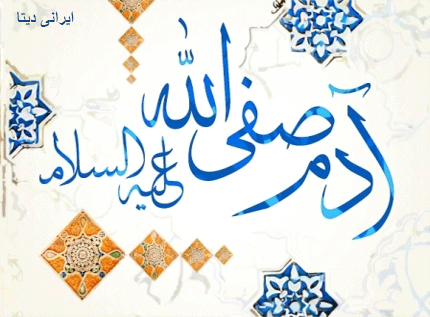 ایرانی دیتا
آدم صفی الله
علیه السلام